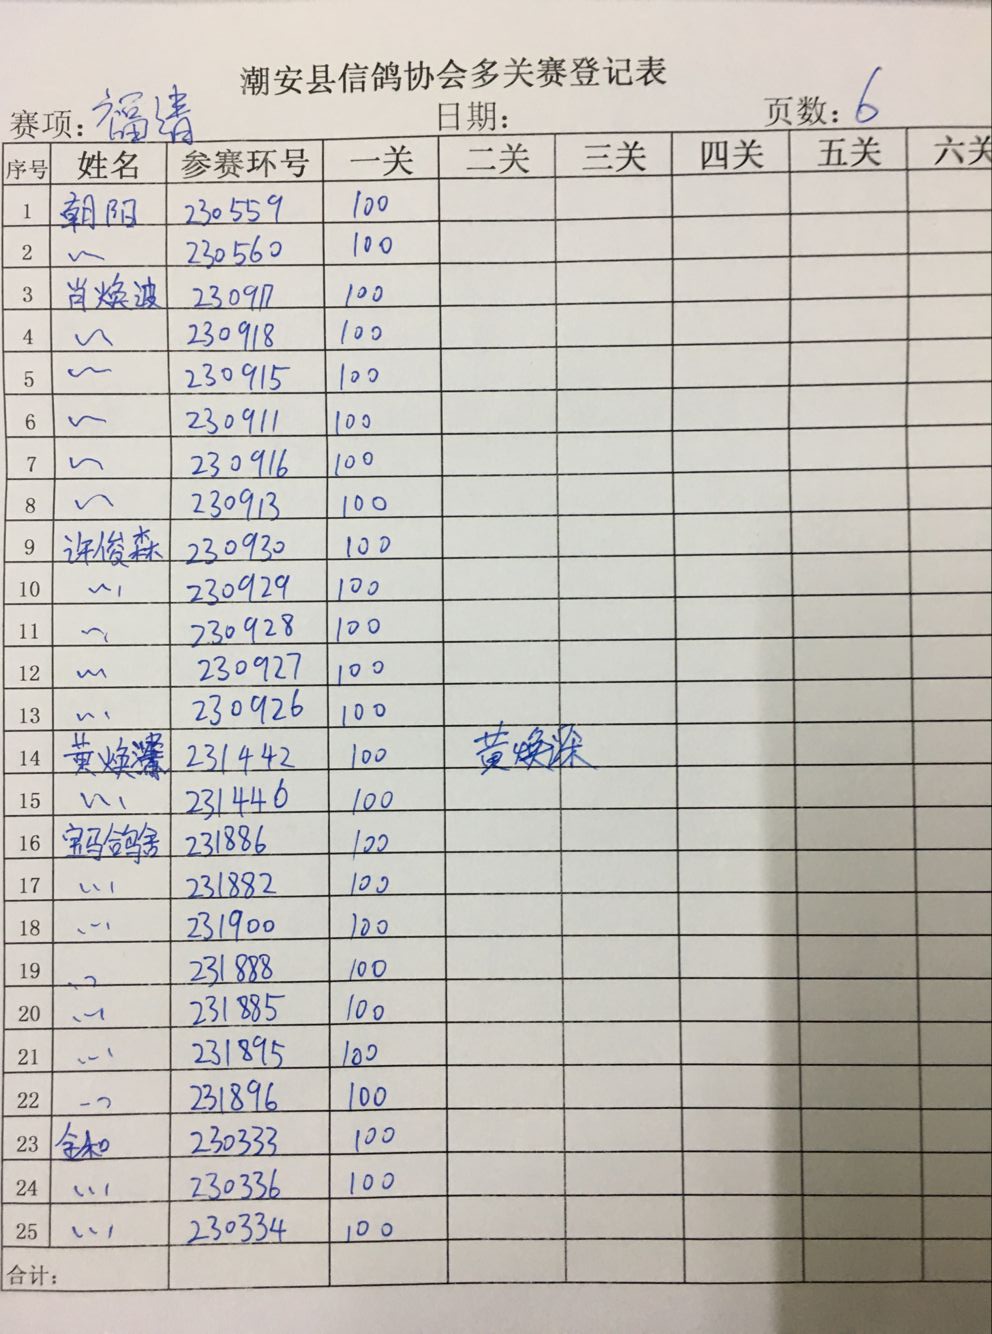 潮安县信鸽协会多关赛登记表
赛项：福清 日期： 页数：6
序号 姓名 参赛环号 一关 二关 三关 四关 五关 六关
1 朝阳 230559 100
2 〃 230560 100
3 肖焕波 230917 100
4 〃 230918 100
5 〃 230915 100
6 〃 230911 100
7 〃 230916 100
8 〃 230913 100
9 许俊森 230930 100
10 〃 230929 100
11 〃 230928 100
12 〃 230927 100
13 〃 230926 100
14 黄焕 231442 100 黄焕深
15 〃 231446 100
16 宝马鸽舍 231886 100
17 〃 231882 100
18 〃 231900 100
19 〃 231888 100
20 〃 231885 100
21 〃 231895 100
22 〃 231896 100
23 230333 100
24 〃 230336 100
25 〃 230334 100
合计：